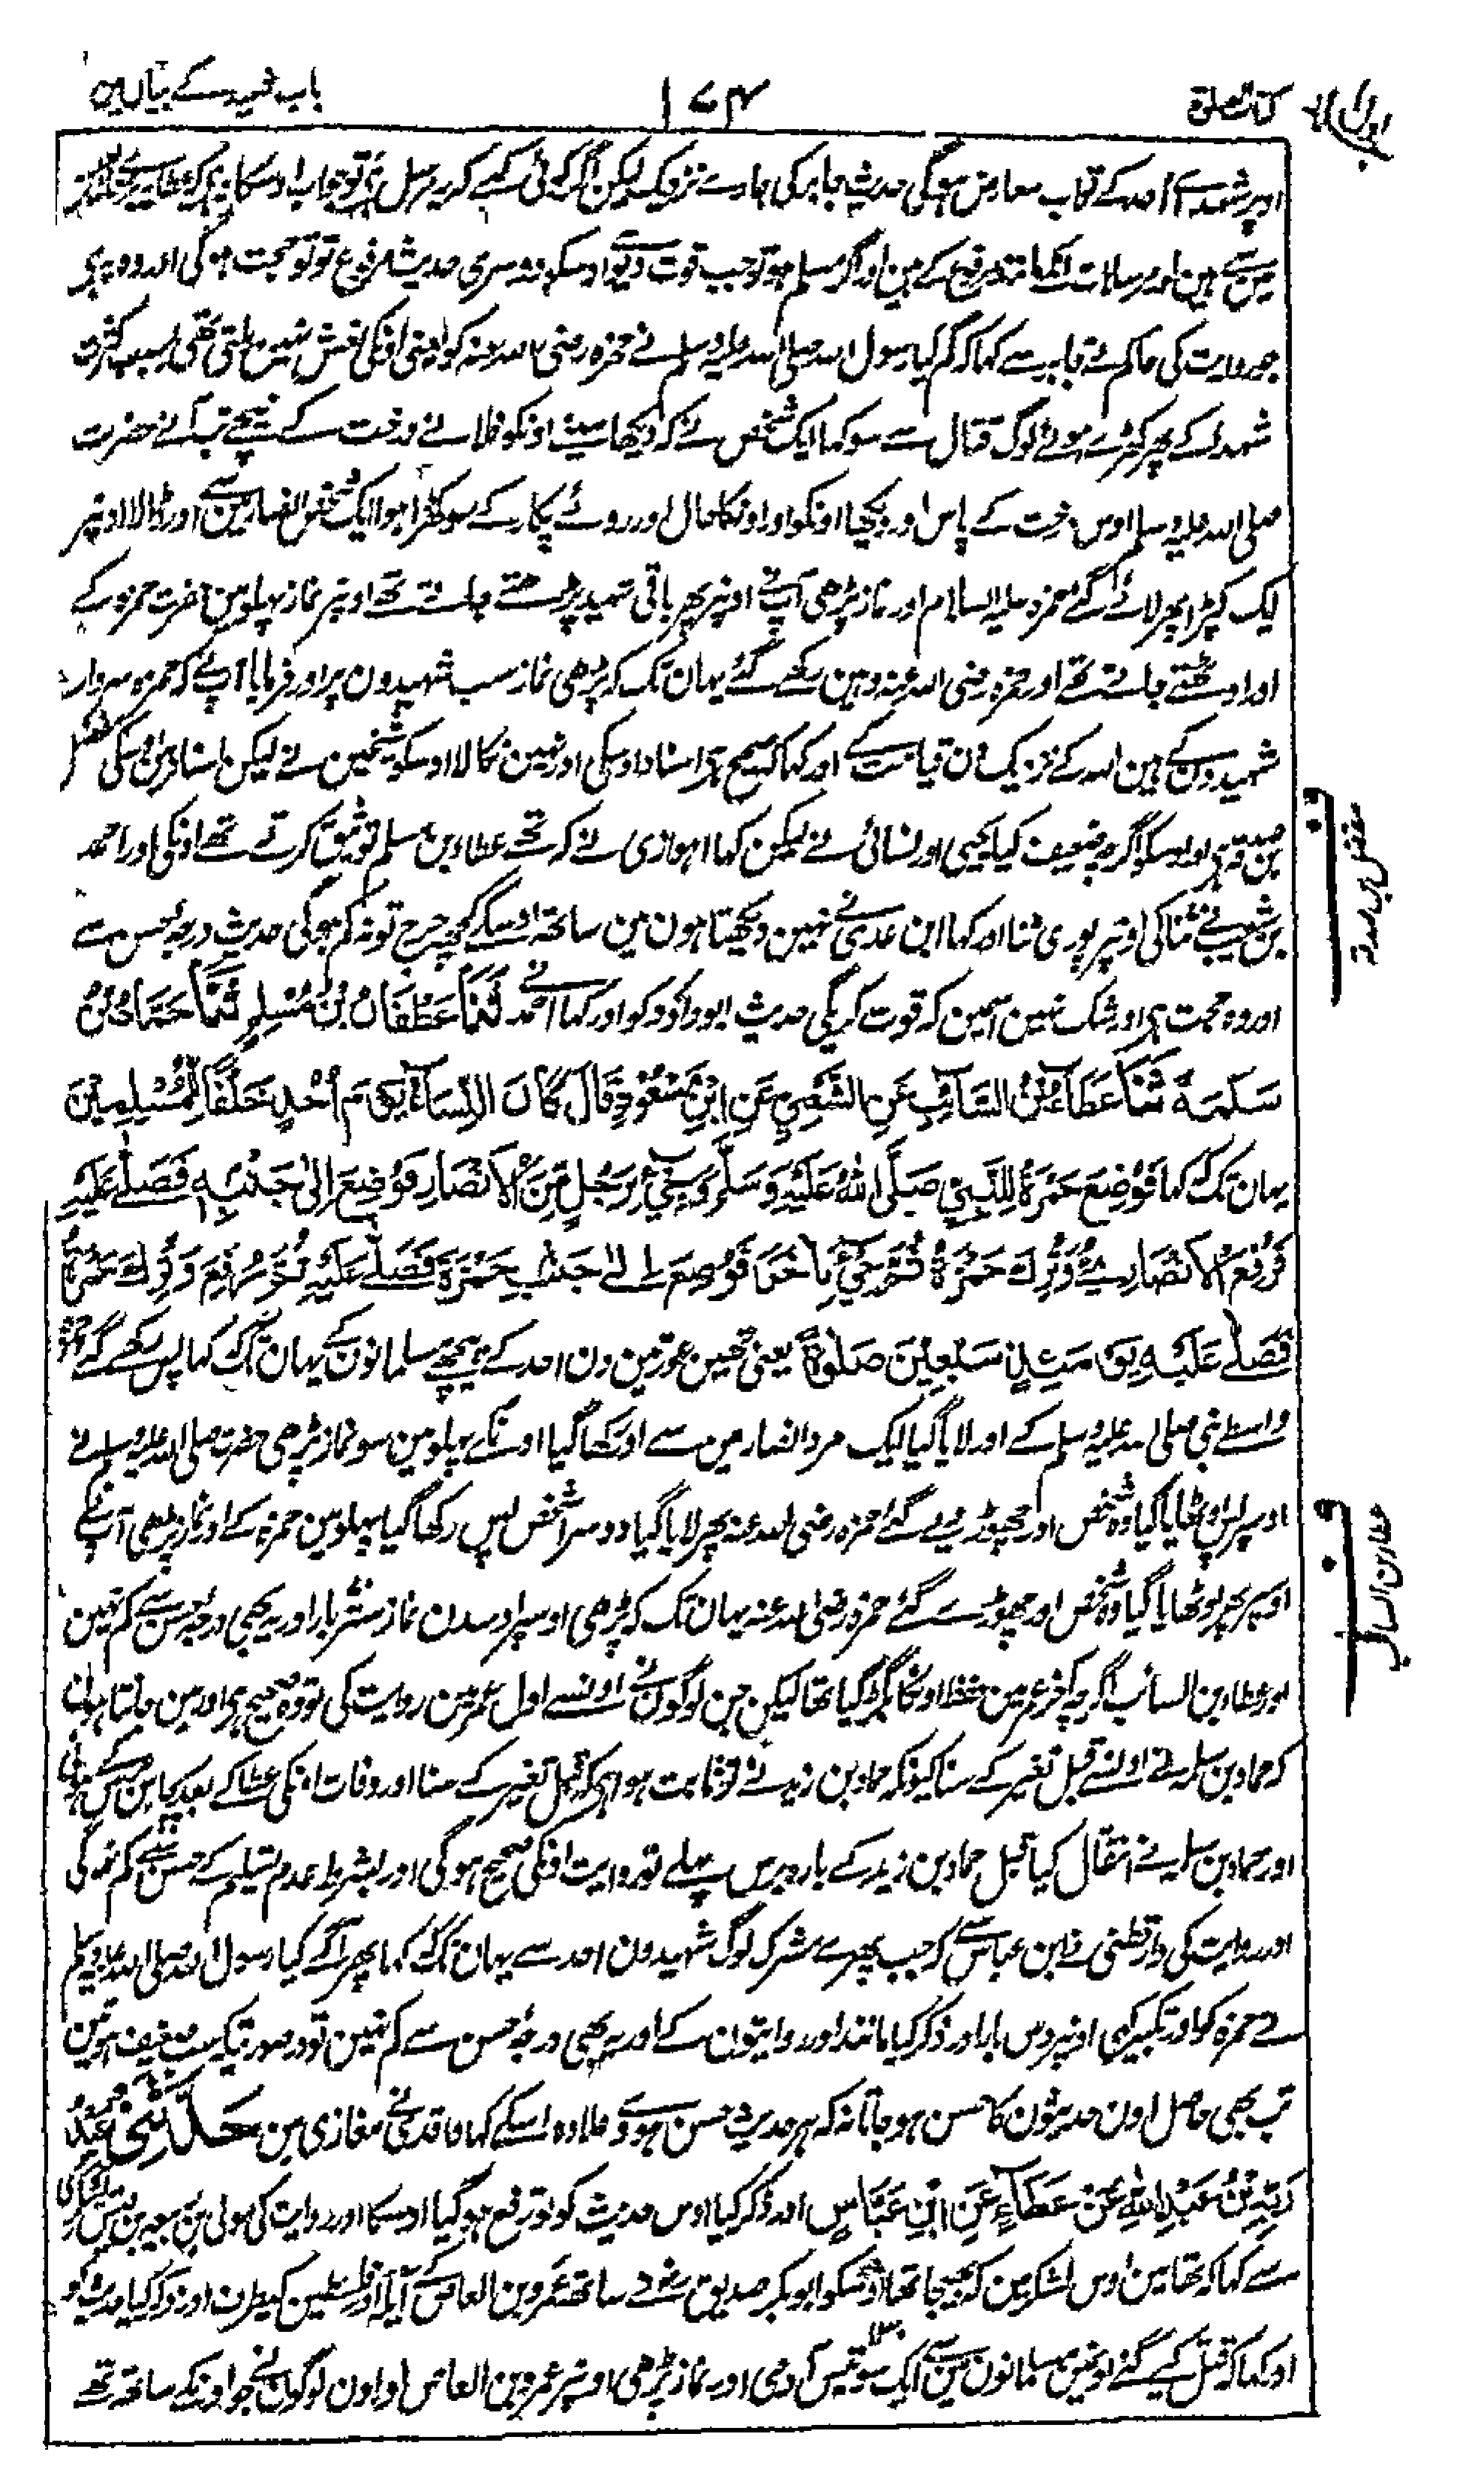 باب شہید کے بیان میں
۱۷۴
کتاب الصلوۃ
اوپر شہدائے احد کے قاب معارض ہوگی حدیث جابر کی ہمارے نزدیک لیکن اگر کوئی کہے کہ یہ مرسل ہی تو جواب اوسکا یہ ہی کہ عطا
میں سے ہین اور مرسلات انکے مانند مرفوع کے ہین اور اگر مسلم ہو تو جب قوت دیوے اوسکو دوسری حدیث مرفوع تو تو حجت ہوگی اور وہ یہ ہی
جو روایت کی حاکم نے جابر سے کہا کہ گم کیا رسول اللہ صلی اللہ علیہ وسلم نے حمزہ رضی اللہ عنہ کو یعنی انکی نعش نہین ملتی تھی بسبب کثرت
شہدا کے پھر کھڑے ہوئے لوگ قتال سے سو کہا ایک شخص نے کہ دیکھا مینے اونکو فلانے درخت کے نیچے تب آئے حضرت
صلی اللہ علیہ وسلم اوس درخت کے پاس اور دیکھا اونکو اور اونکا حال اور روئے پکار کے سو کھڑا ہوا ایک شخص انصار مین سے اور ڈالا اونپر
ایک کپڑا پھر لائے گئے حمزہ علیہ السلام اور نماز پڑھی آپنے اونپر پھر باقی شہید پڑھتے جاتے تھے اونپر نماز پہلو مین حضرت حمزہ کے
اور اوٹھتے جاتے تھے اور حمزہ رضی اللہ عنہ وہین رکھے گئے یہان تک کہ پڑھی نماز سب شہیدون پر اور فرمایا آپنے کہ حمزہ سردار
شہیدون کے ہین اللہ کے نزدیک دن قیامت کے اور کہا کہ صحیح ہی اسناد اوسکی اور نہین نکالا اوسکو شیخین نے لیکن اسناد مین اوسکی مفضل
بن صدقہ ہی اور اوسکو اگرچہ ضعیف کیا یحیی اور نسائی نے لیکن کہا اہوازی نے کہ تھے عطاء بن مسلم توثیق کرتے تھے اونکی اور احمد
بن شعیب نے ثنا کی اونپر پوری ثنا اور کہا ابن عدی نے نہین دیکھتا ہون مین ساتھ اوسکے کچھ حرج تو نہ کم ہوگی حدیث درجۂ حسن سے
اور وہ حجت ہی اور شک نہین اسمین کہ قوت کریگی حدیث ابو داؤد کو اور کہا احمد نے ثَنَا عَفَّانُ بْنُ مُسْلِمٍ ثَنَا حَمَّادُ بْنُ
سَلَمَةَ ثَنَا عَطَاءُ بْنُ السَّائِبِ عَنِ الشَّعْبِيِّ عَنِ ابْنِ مَسْعُوْدٍ قَالَ كَانَ النِّسَاءُ يَوْمَ أُحُدٍ خَلْفَ الْمُسْلِمِيْنَ
یہان تک کہ کہا فَوُضِعَ حَمْزَةُ لِلنَّبِيِّ صَلَّى اللهُ عَلَيْهِ وَسَلَّمَ وَجِيْءَ بِرَجُلٍ مِنَ الْاَنْصَارِ فَوُضِعَ اِلٰى جَنْبِهٖ فَصَلّٰى عَلَيْهِ
فَرُفِعَ الْاَنْصَارِيُّ وَتُرِكَ حَمْزَةُ ثُمَّ جِيْءَ بِاٰخَرَ فَوُضِعَ اِلٰى جَنْبِ حَمْزَةَ فَصَلّٰى عَلَيْهِ ثُمَّ رُفِعَ وَتُرِكَ حَمْزَةُ
فَصَلّٰى عَلَيْهِ يَوْمَئِذٍ سَبْعِيْنَ صَلٰوةً یعنی تھین عورتین دن احد کے پیچھے مسلمانون کے یہان تک کہ کہا پس رکھے گئے حمزہ
واسطے نبی صلی اللہ علیہ وسلم کے اور لایا گیا ایک مرد انصار مین سے اور رکھا گیا اونکے پہلو مین سو نماز پڑھی حضرت صلی اللہ علیہ وسلم نے
اوسپر پس اوٹھایا گیا وہ شخص اور چھوڑ دیے گئے حمزہ رضی اللہ عنہ پھر لایا گیا دوسرا شخص پس رکھا گیا پہلو مین حمزہ کے اور نماز پڑھی آپنے
اوسپر پھر اوٹھایا گیا وہ شخص اور چھوڑ دیے گئے حمزہ رضی اللہ عنہ یہان تک کہ پڑھی اوسپر اوسدن نماز ستر بار اور یہ بھی درجۂ حسن سے کم نہین
اور عطاء بن السائب اگرچہ آخر عمر مین حفظ اونکا بگڑ گیا تھا لیکن جن لوگون نے اونسے اول عمر مین روایت کی تو وہ صحیح ہی اور مین جانتا ہون
کہ حماد بن سلمہ نے اونسے قبل تغیر کے سنا کیونکہ حماد بن زید نے تو ثابت ہوا ہی کہ قبل تغیر کے سنا اور وفات انکی عطا کے بعد پچاس برس کے ہوئی
اور حماد بن سلمہ نے انتقال کیا قبل حماد بن زید کے بارہ برس پہلے تو روایت انکی صحیح ہوگی اور بشرط عدم تسلیم کے حسن سے کم نہوگی
اور روایت کی دارقطنی نے ابن عباس سے کہ جب پھرے مشرک لوگ شہیدون احد سے یہان تک کہ کہا پھر آگے کیا رسول اللہ صلی اللہ علیہ وسلم
نے حمزہ کو اور تکبیر کہی اونپر دس بار اور ذکر کیا مانند اور روایتون کے اور یہ بھی درجۂ حسن سے کم نہین تو درصورتیکہ سب ضعیف ہوتین
تب بھی حاصل اون حدیثون کا حسن ہو جاتا نہ کہ ہر حدیث حسن ہووے علاوہ اسکے کہا واقدی نے مغازی مین حَدَّثَنِيْ عَبْدُ
رَبِّهٖ بْنُ عَبْدِ اللهِ عَنْ عَطَاءٍ عَنِ ابْنِ عَبَّاسٍ اور ذکر کیا اوس حدیث کو تو رفع ہو گیا اوسکا اور روایت کی
سے کہا کہ تھا مین اوس لشکر مین کہ بھیجا تھا اوسکو ابوبکر صدیق نے ساتھ عمرو بن العاص کے آیلہ اور فلسطین کیطرف اور ذکر کیا حدیث کو
اور کہا کہ قتل کیے گئے اوسمین مسلمانون مین سے ایک سو تیس آدمی اور نماز پڑھی اونپر عمرو بن العاص اور اون لوگون نے جو اونکے ساتھ تھے
مفضل بن صدقہ
عطاء بن السائب